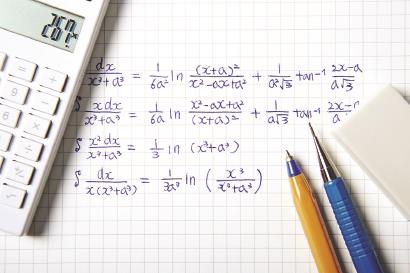 ∫ dx/(x³+a³) = 1/(6a²) ln (x+a)²/(x²-ax+a²) + 1/(a²√3) tan⁻¹ (2x-a)/(a√3)
∫ xdx/(x³+a³) = 1/(6a) ln (x²-ax+a²)/(x+a)² + 1/(a√3) tan⁻¹ 2x-
∫ x²dx/(x³+a³) = 1/3 ln (x³+a³)
∫ dx/(x(x³+a³)) = 1/(3a³) ln (x³/(x³+a³))